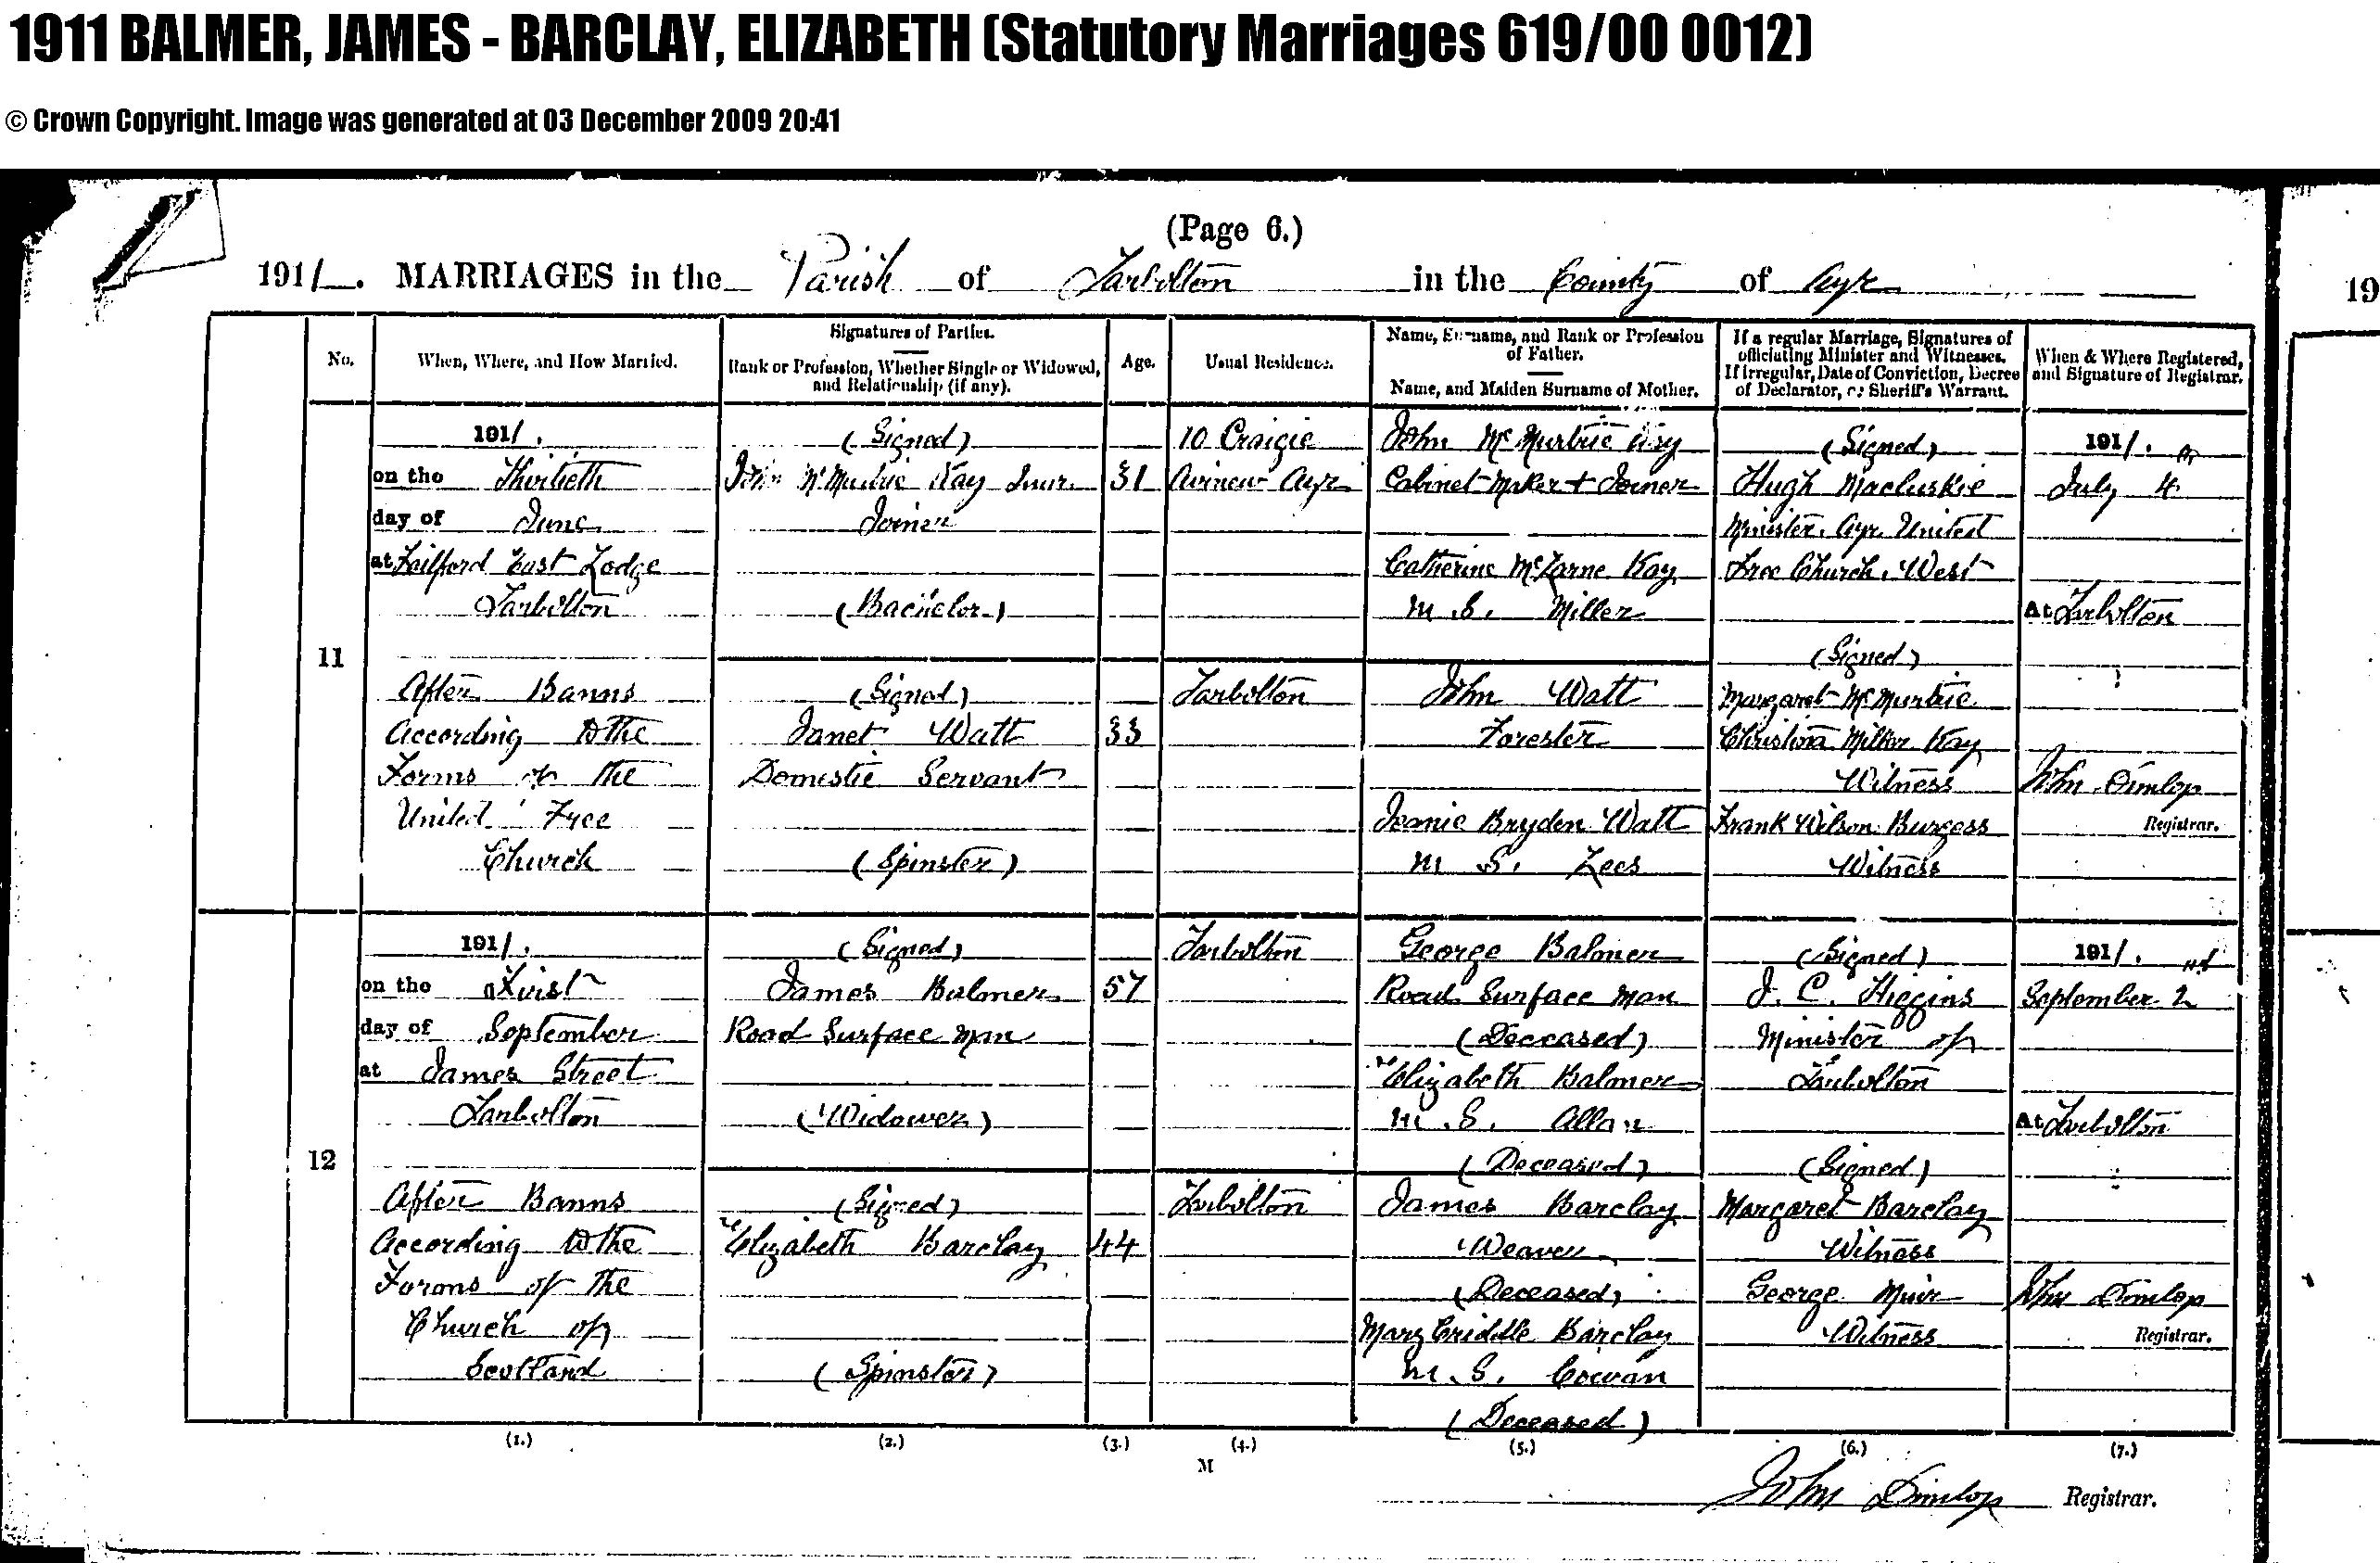 1911 BALMER, JAMES - BARCLAY, ELIZABETH (Statutory Marriages 619/00 0012)
© Crown Copyright. Image was generated at 03 December 2009 20:41
(Page 6.)
1911. MARRIAGES in the Parish of Tarbolton in the County of Ayr
19
No.
When, Where, and How Married.
Signatures of Parties.
Rank or Profession, Whether Single or Widowed, and Relationship (if any).
Age.
Usual Residence.
Name, Surname, and Rank or Profession of Father.
Name, and Maiden Surname of Mother.
If a regular Marriage, Signatures of officiating Minister and Witnesses.
If irregular, Date of Conviction, Decree of Declarator, or Sheriff's Warrant.
When & Where Registered, and Signature of Registrar.
11
1911.
on the Thirtieth
day of June
at Failford East Lodge
Tarbolton
After Banns
According to the
Forms of the
United Free
Church
(Signed)
John McMurtrie Kay Junr.
Joiner
(Bachelor)
(Signed)
Janet Watt
Domestic Servant
(Spinster)
31
33
10 Craigie
Avinew Ayr
Tarbolton
John McMurtrie Kay
Cabinet Maker + Joiner
Catherine Kay
M.S. Miller
John Watt
Forester
Jeanie Bryden Watt
M.S. Lees
(Signed)
Hugh Macluskie
Minister, Ayr, United
Free Church, West
(Signed)
Margaret McMurtrie
Christina Miller Kay
Witness
Frank Wilson Burgess
Witness
1911.
July 4
At Tarbolton
John Dunlop
Registrar.
12
1911.
on the First
day of September
at James Street
Tarbolton
After Banns
According to the
Forms of the
Church of
Scotland
(Signed)
James Balmer
Road Surface Man
(Widower)
(Signed)
Elizabeth Barclay
(Spinster)
57
44
Tarbolton
Tarbolton
George Balmer
Road Surface Man
(Deceased)
Elizabeth Balmer
M.S. Allan
(Deceased)
James Barclay
Weaver
(Deceased)
Mary Criddle Barclay
M.S. Cowan
(Deceased)
(Signed)
J. C. Higgins
Minister of
Tarbolton
(Signed)
Margaret Barclay
Witness
George Muir
Witness
1911.
September 2nd
At Tarbolton
John Dunlop
Registrar.
(1.) (2.) (3.) (4.) (5.) (6.) (7.)
M
John Dunlop Registrar.